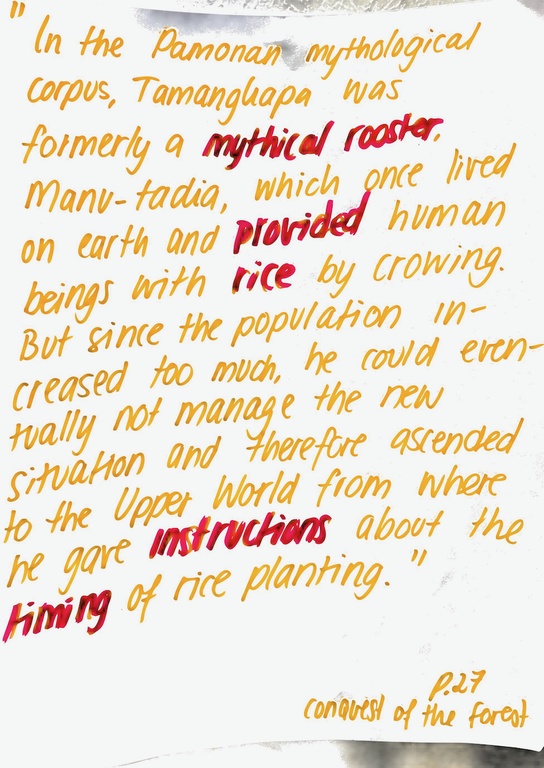 "In the Pamonan mythological
corpus, Tamangkapa was
formerly a mythical rooster,
Manu-tadia, which once lived
on earth and provided human
beings with rice by crowing.
But since the population in-
creased too much, he could even-
tually not manage the new
situation and therefore ascended
to the Upper World from where
he gave instructions about the
timing of rice planting."
p.27
conquest of the forest